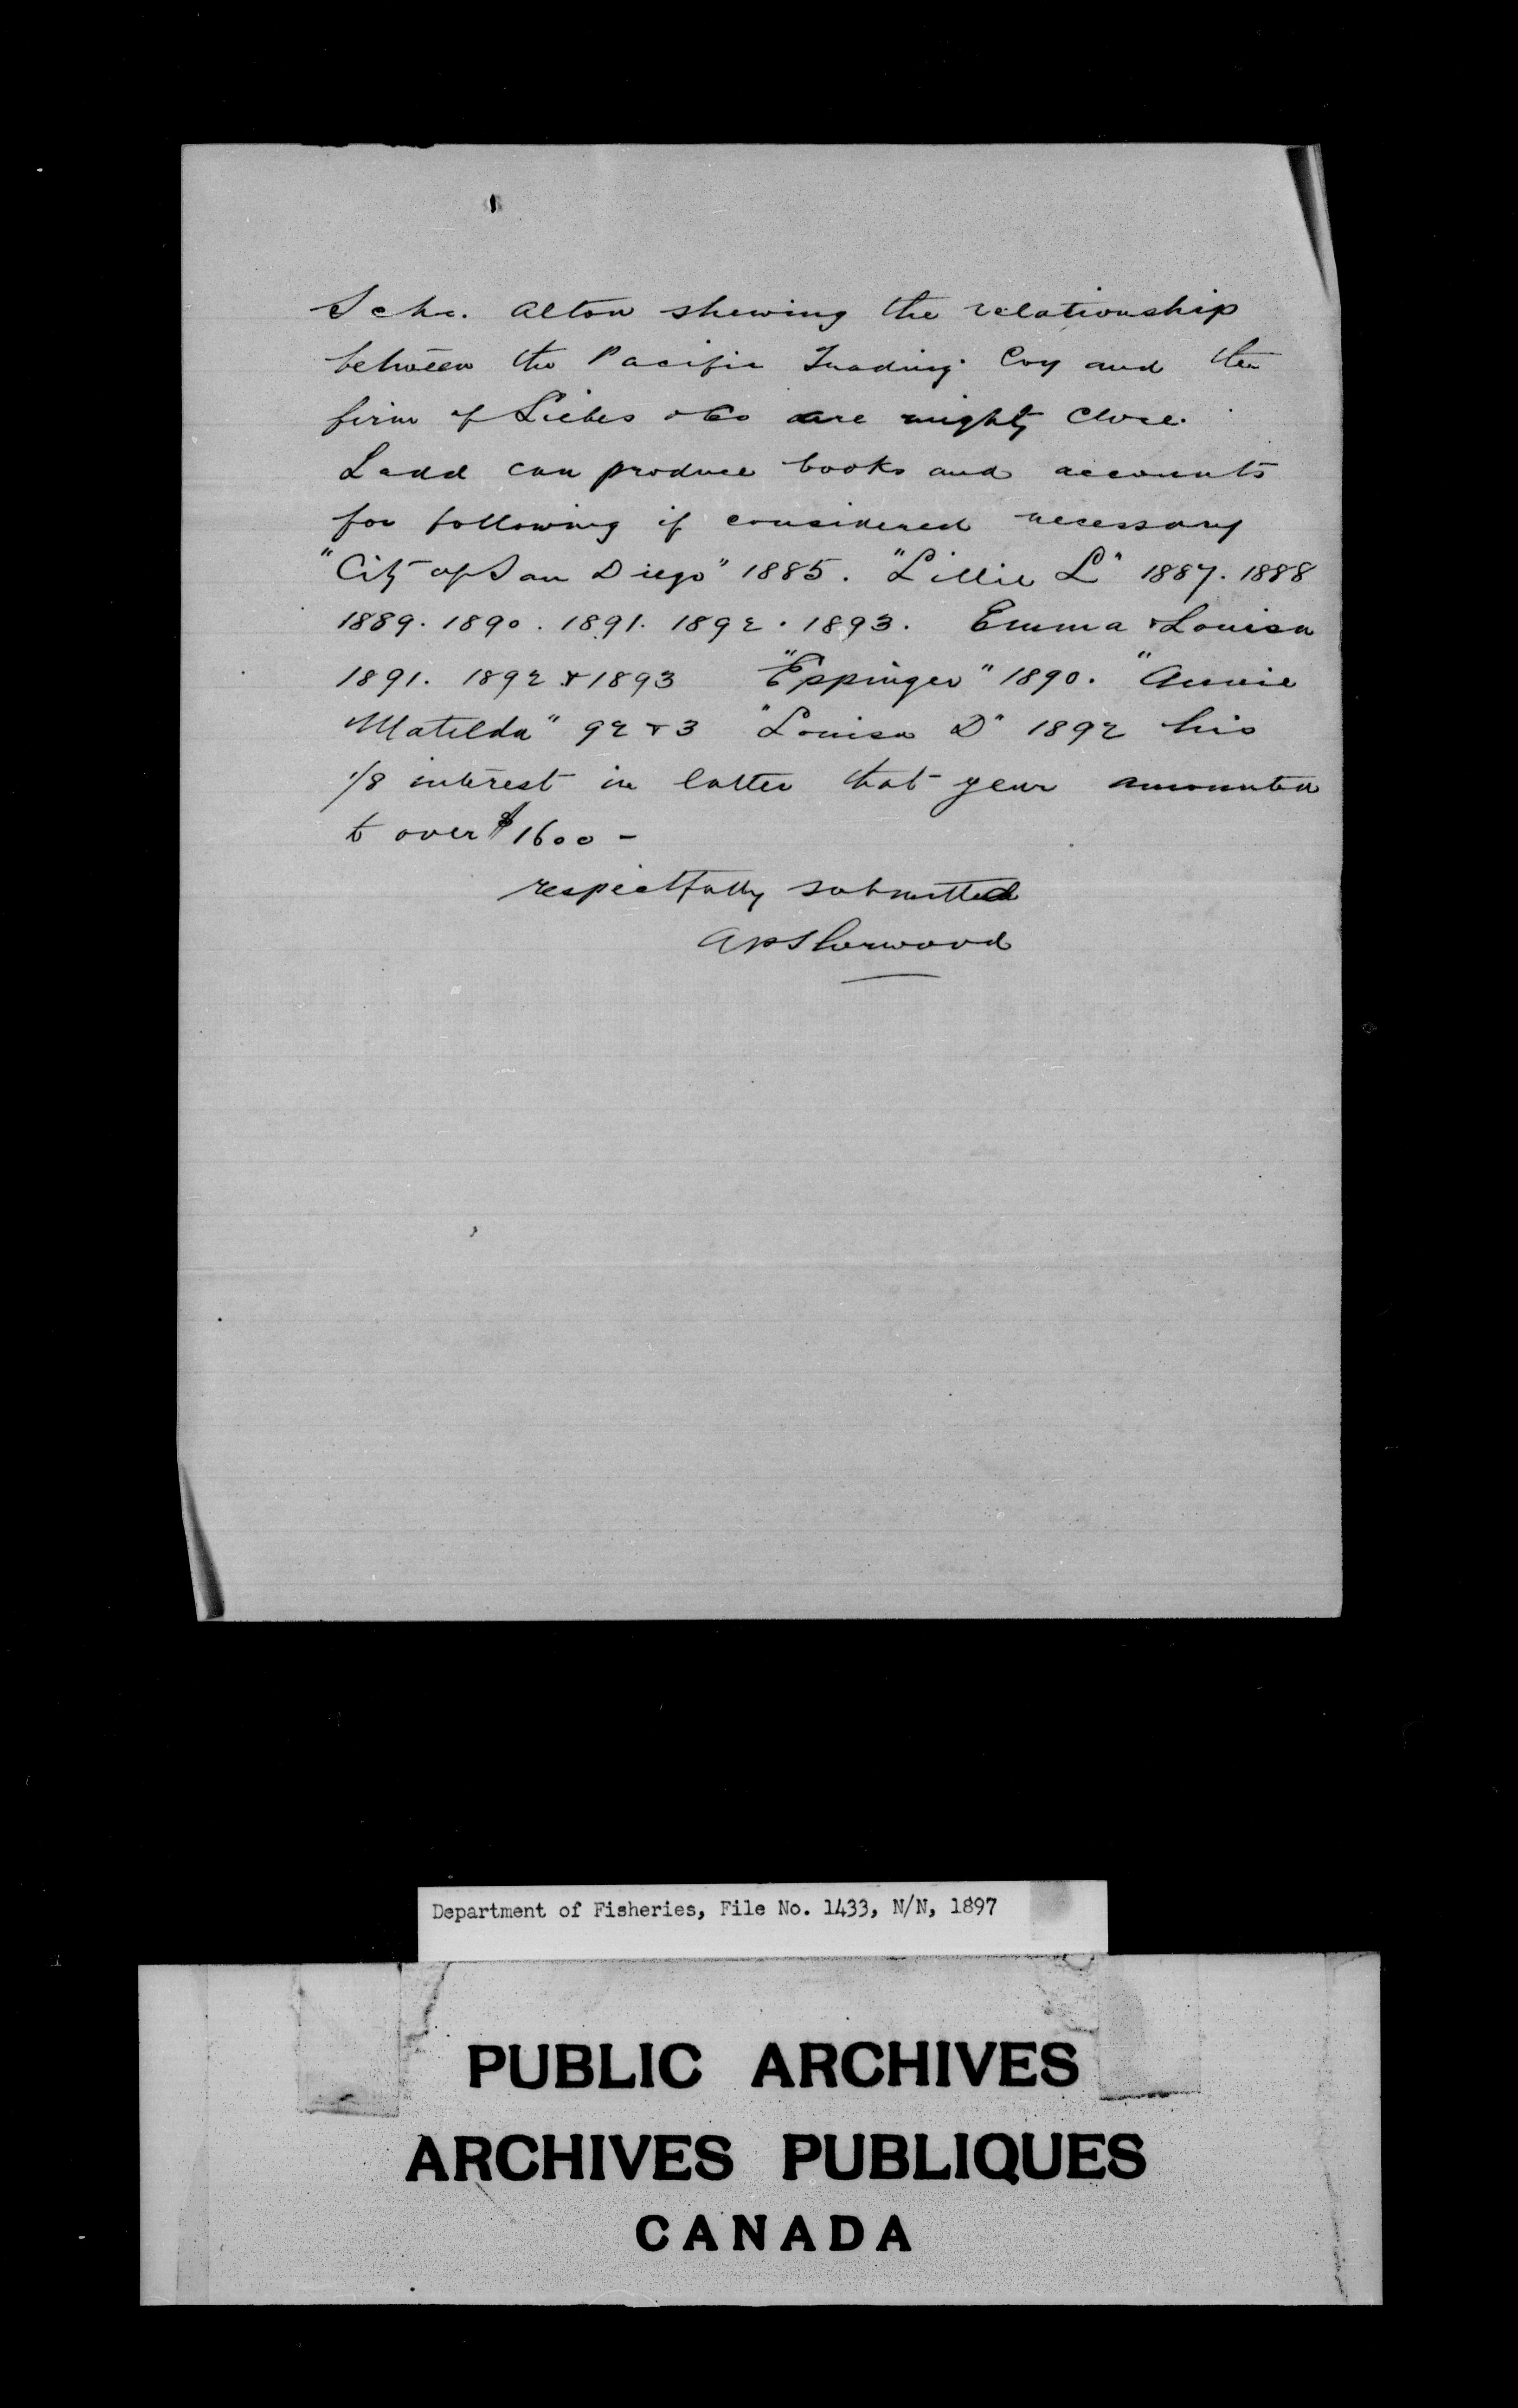 Schr. Alton shewing the relationship
between the Pacific Trading Coy and the
firm of Liebes & Co are mighty close.
Ladd can produce books and accounts
for following if considered necessary
"City of San Diego" 1885. "Lillie L" 1887. 1888
1889. 1890. 1891. 1892. 1893. Emma & Louisa
1891. 1892 & 1893 "Eppinger" 1890. "Annie
Matilda" 92 & 3 "Louisa D" 1892 his
1/8 interest in latter that year amounted
to over $1600 -
respectfully submitted
APSherwood
Department of Fisheries, File No. 1433, N/N, 1897
PUBLIC ARCHIVES
ARCHIVES PUBLIQUES
CANADA